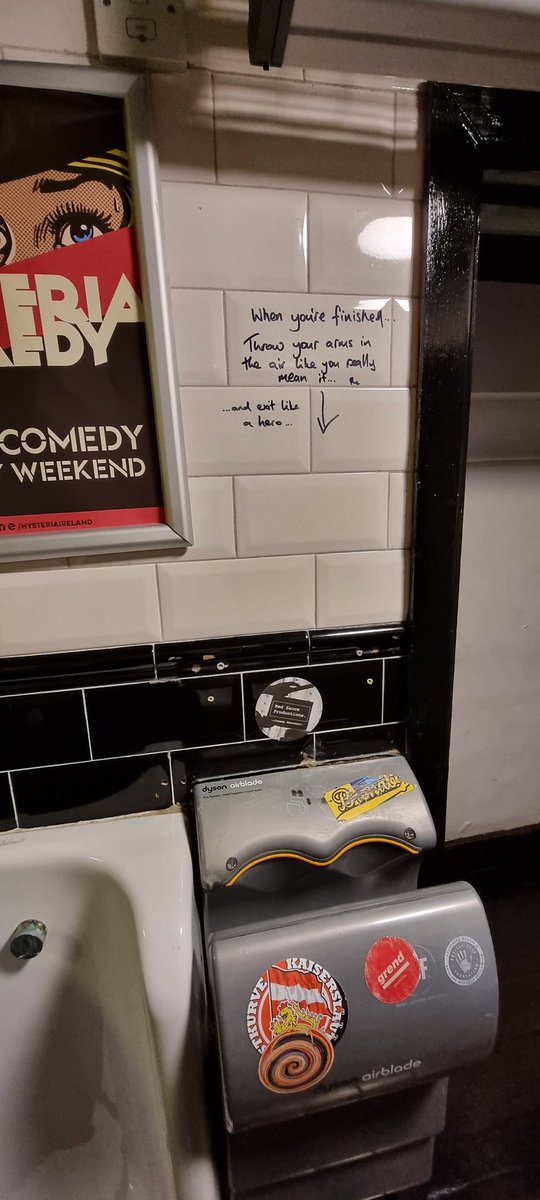 ERIA
EDY
COMEDY
WEEKEND
/HYSTERIAIRELAND
When you're finished...
Throw your arms in
the air like you really
mean it...
...and exit like
a hero...
Red Sauce
Productions.
dyson airblade
KAISERSLAU
STKURVE
grend
F
dyson airblade